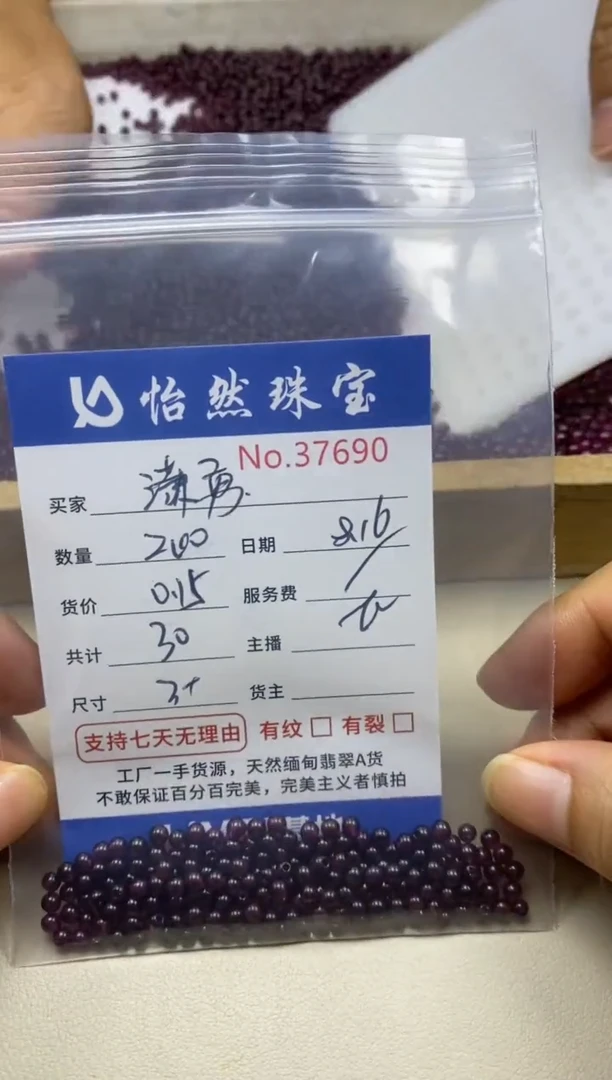 怡然珠宝
No.37690
买家
数量 200 日期 8.16
货价 0.15 服务费
共计 30 主播
尺寸 3+ 货主
支持七天无理由 有纹 有裂
工厂一手货源，天然缅甸翡翠A货
不敢保证百分百完美，完美主义者慎拍